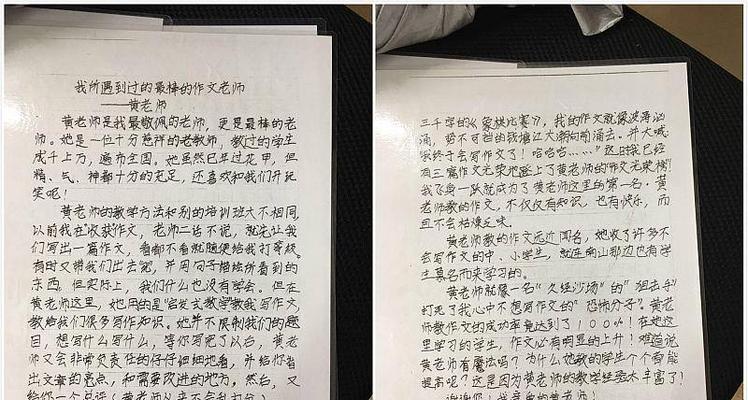 我所遇到过的最棒的作文老师
——黄老师
黄老师是我最敬佩的老师，更是最棒的老
师。她是一位十分慈祥的老教师，教过的学生
成千上万，遍布全国。她虽然已年过花甲，但
精、气、神都十分的充足，还喜欢和我们开玩
笑呢！
黄老师的教学方法和别的培训班大不相同，
以前我在"收获作文，老师二话不说，就先让我
们写出一篇作文，看都不看就随便给我打等级。
有时又带我们出去玩，并用句子描绘所看到的
东西。但实际上，我们什么也没有学会。但在
黄老师这里，她用的是"启发式教学教我写作文，
教给我们很多写作知识。她并不限制我们的题
目，想写什么写什么，等你写完了以后，黄老
师又会非常负责任的仔仔细细地看，并给你指
出文章的亮点，和需要改进的地方，然后，又
给你一个总评（黄老师从来不会乱打分）
三千字的《象棋比赛》，我的作文就像波涛汹
涌，势不可挡的钱塘江大潮向前涌去。并大喊：
终于会写作文了！哈哈哈……"这时我已经
有三篇作文光荣地登上了黄老师的作文光荣榜！
我飞身一跃就成为了黄老师这里的第一名。黄
老师教的作文，不仅仅有知识，也有快乐，而
且不会枯燥乏味。
黄老师教的作文远近闻名，她收了许多不
会写作文的中、小学生，就连南山那边也有学
生慕名而来学习的。
黄老师就像一名"久经沙场"的"狙击手"
打死了我心中不想写作文的"恐怖分子"。黄老
师教作文的成功率竟达到了１００％！在她这
里学习的学生，作文必有明显的上升！难道说
黄老师有魔法吗？为什么她教的学生个个都能
提高呢？这是因为黄老师的教学经验太丰富了！
谢谢您！我亲爱的黄老师！